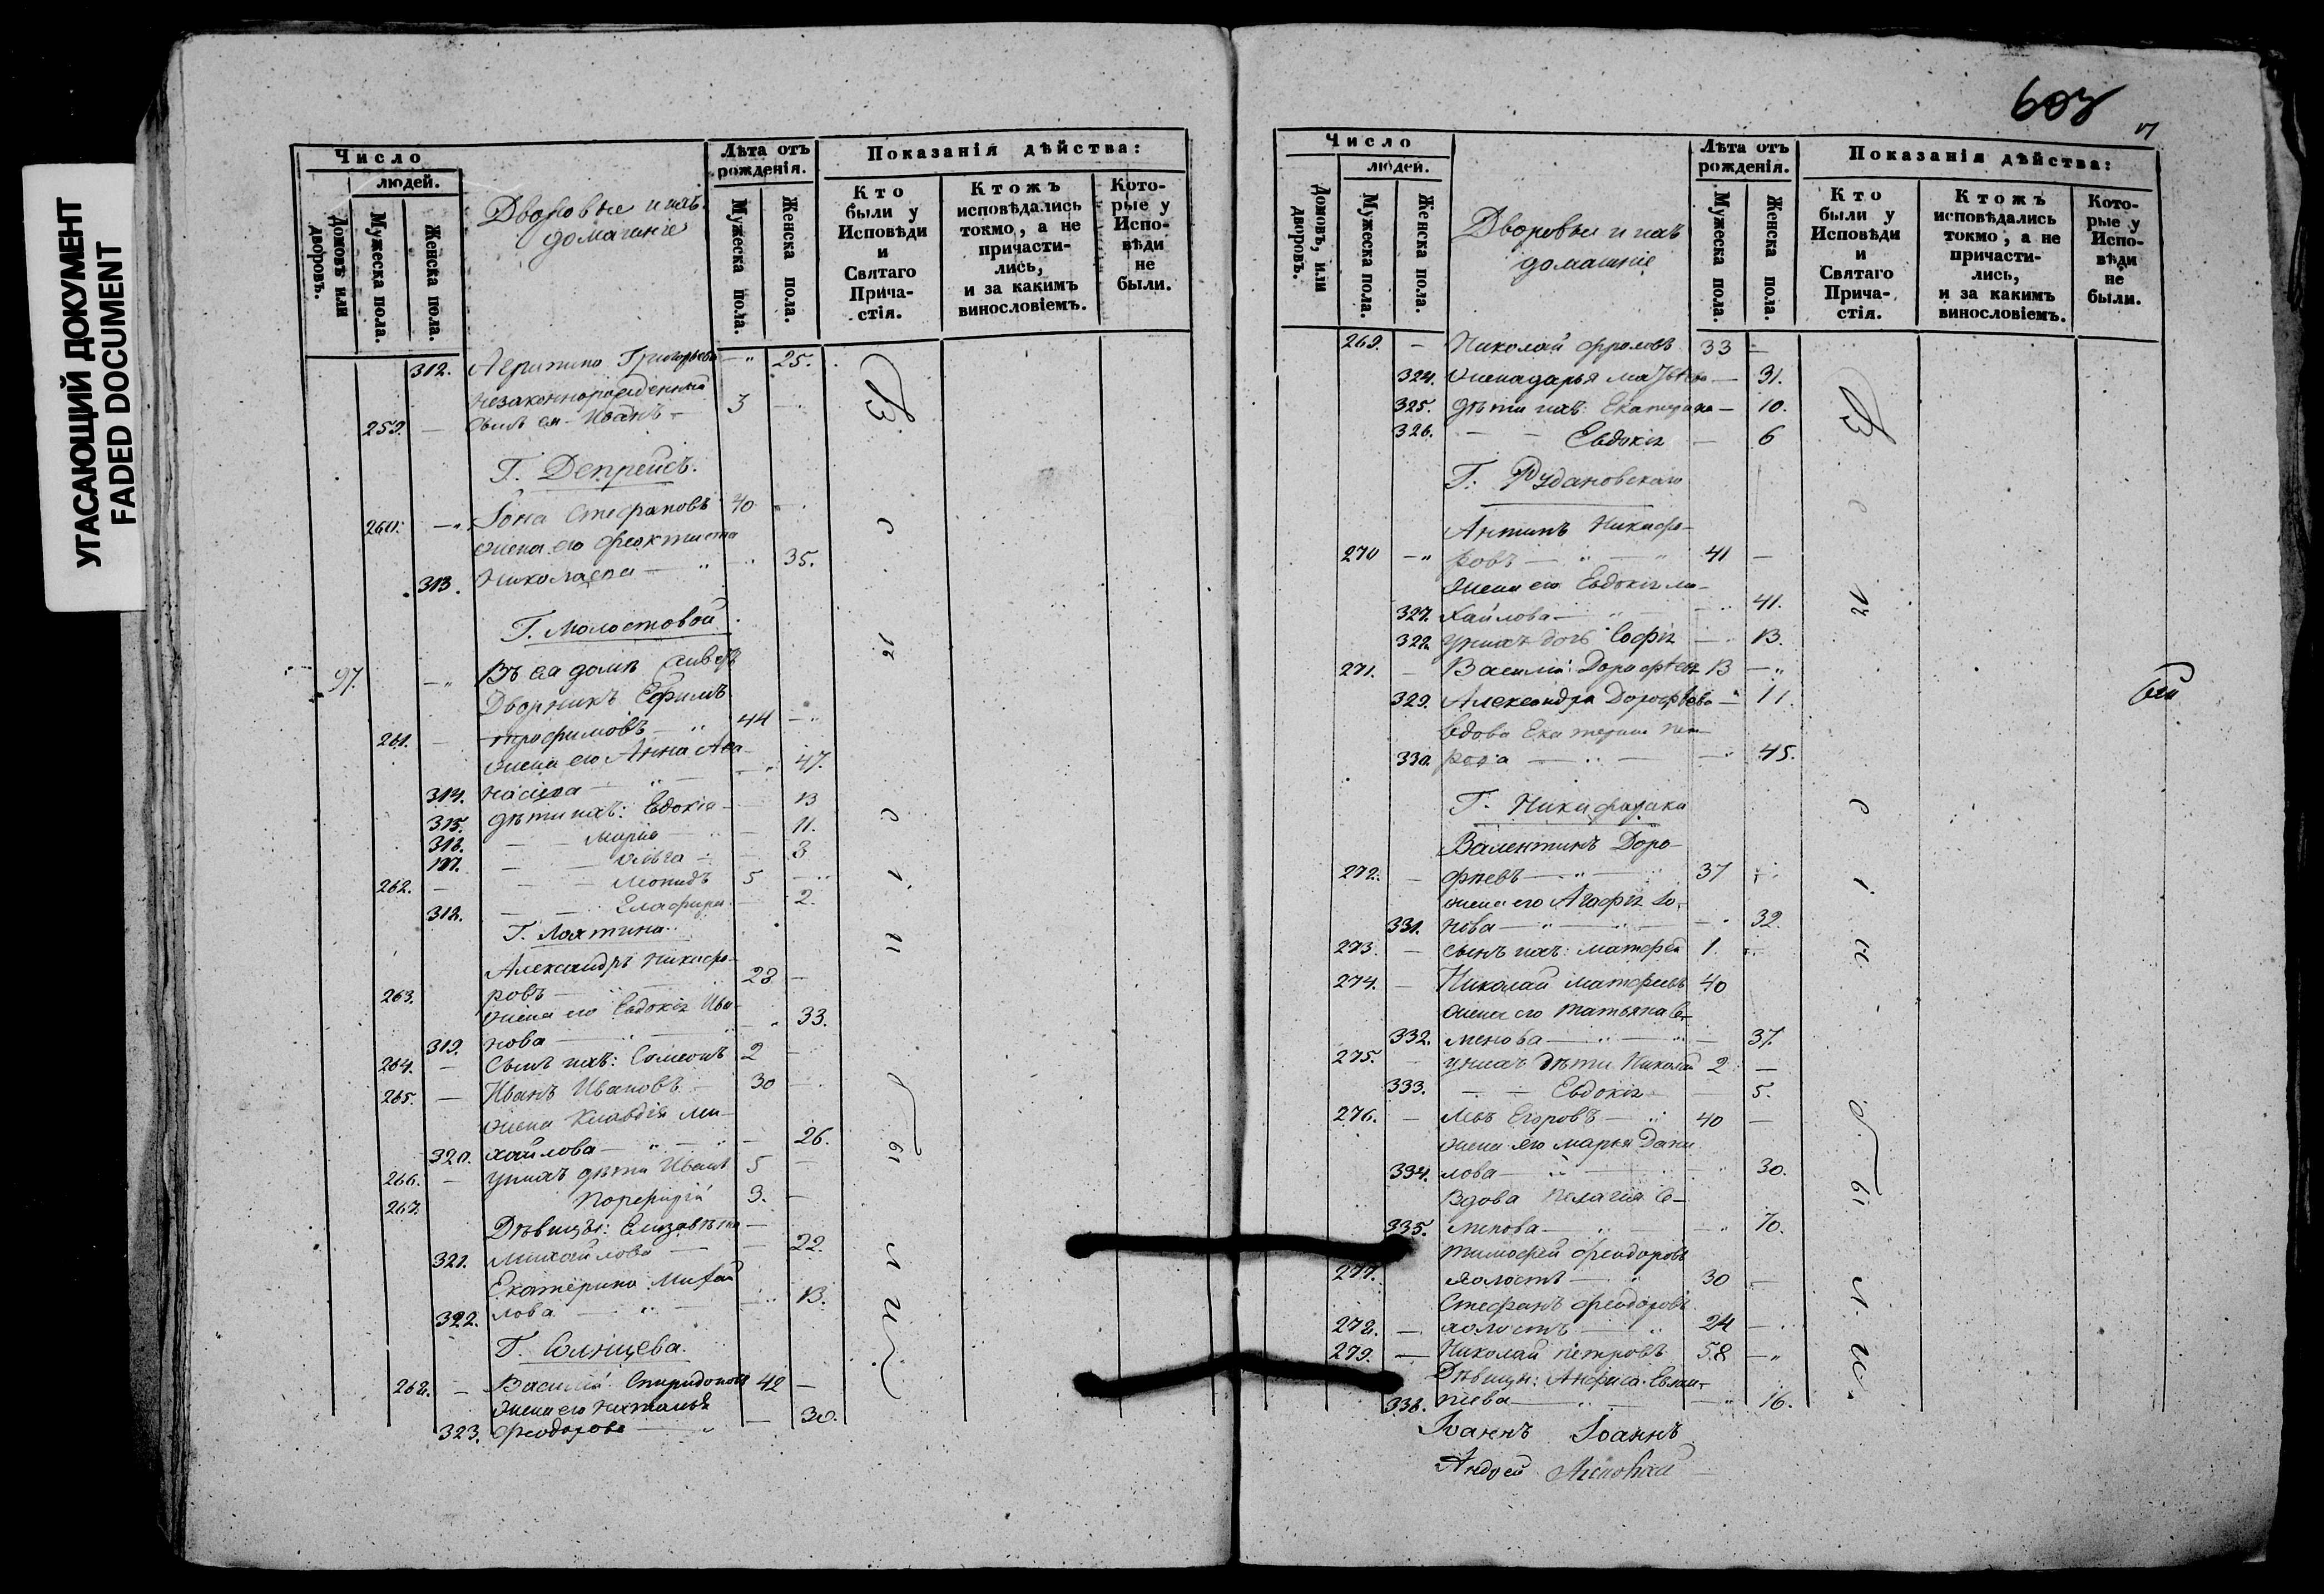 УГАСАЮЩИЙ ДОКУМЕНТ
FADED DOCUMENT
Число
людей.
Домовъ или дворовъ.
Мужеска пола.
Женска пола.
Дворовые и ихъ
домашніе
Лѣта отъ рожденія.
Мужеска пола.
Женска пола.
Показанія дѣйства:
Кто были у Исповѣди и Святаго Прича-стія.
Ктожъ исповѣдались токмо, а не причасти-лись, и за какимъ винословіемъ.
Кото-рые у Испо-вѣди не были.
312. Агрипина Григорьева — 25.
Незаконнорожденный
259. — Сынъ ея Иванъ — 3 —
Г. Депрейсъ.
260. — Іона Стефановъ 40
жена его Феоктиста
313. Николаева — 35.
Г. Молостовой
97. Въ ея домѣ
Дворникъ Ефимъ
261. — Трофимовъ — 44 —
жена его Анна Аѳа-
314. насіева — 47.
315. дѣти ихъ: Евдокія — 13
316. — — Марія — 11.
317. — — Ольга — 8
262. — — Леонидъ 5 —
318. — — Глафира — 2.
Г. Лохтина
Александръ Никифо-
263. ровъ — 28 —
жена его Евдокія Ива-
319. нова — 33.
264. — Сынъ ихъ: Симеонъ 2 —
265. — Иванъ Ивановъ — 30 —
жена Клавдія Ми-
320. хайлова — 26.
266. — у нихъ дѣти Иванъ 5 —
267. Порфирій 3. —
Дѣвицы: Елизавета —
321. Михайлова — 22.
Екатерина Михай
322. лова — 13.
Г. Солнцева.
268. — Василій Спиридоновъ 42 —
жена его Наталья
323. Феодорова — 30.
603
Число
людей.
Домовъ, или дворовъ.
Мужеска пола.
Женска пола.
Дворовые и ихъ
домашніе
Лѣта отъ рожденія.
Мужеска пола.
Женска пола.
Показанія дѣйства:
Кто были у Исповѣди и Святаго Прича-стія.
Ктожъ исповѣдались токмо, а не причасти-лись, и за какимъ винословіемъ.
Кото-рые у Испо-вѣди не были.
269. — Николай Фроловъ 33 —
324. жена Дарья Матвѣева — 31.
325. дѣти ихъ: Екатерина — 10.
326. — — Евдокія — 6
Г. Рудановскаго
Антипъ Никифо-
270 — ровъ — 41 —
жена его Евдокія Ми-
327. хайлова — 41.
328. у нихъ дочь Софія — 13.
271. — Василій Дорофѣевъ 13 —
329. Александра Дорофѣева — 11.
вдова Екатерина Пет-
330. рова — 45.
Г. Никифораки
Валентинъ Доро-
272. — фѣевъ — 37
жена его Агафія Іо-
331. нова — 32.
273. — сынъ ихъ: Матфей 1.
274. — Николай Матфеевъ 40
жена его Татьяна Се-
332. менова — 37.
275. — у нихъ дѣти Николай 2 —
333. — — Евдокія — 5.
276. — Левъ Егоровъ — 40 —
жена его Марья Дани
334. лова — 30.
Вдова Пелагія Се-
335. менова — 70.
Тимофей Феодоровъ
277. холостъ — 30 —
Стефанъ Феодоровъ
278. — холостъ — 24 —
279. — Николай Петровъ 58 —
Дѣвицы: Анфиса
336. 16.
Іоаннъ Іоаннъ
Андрей